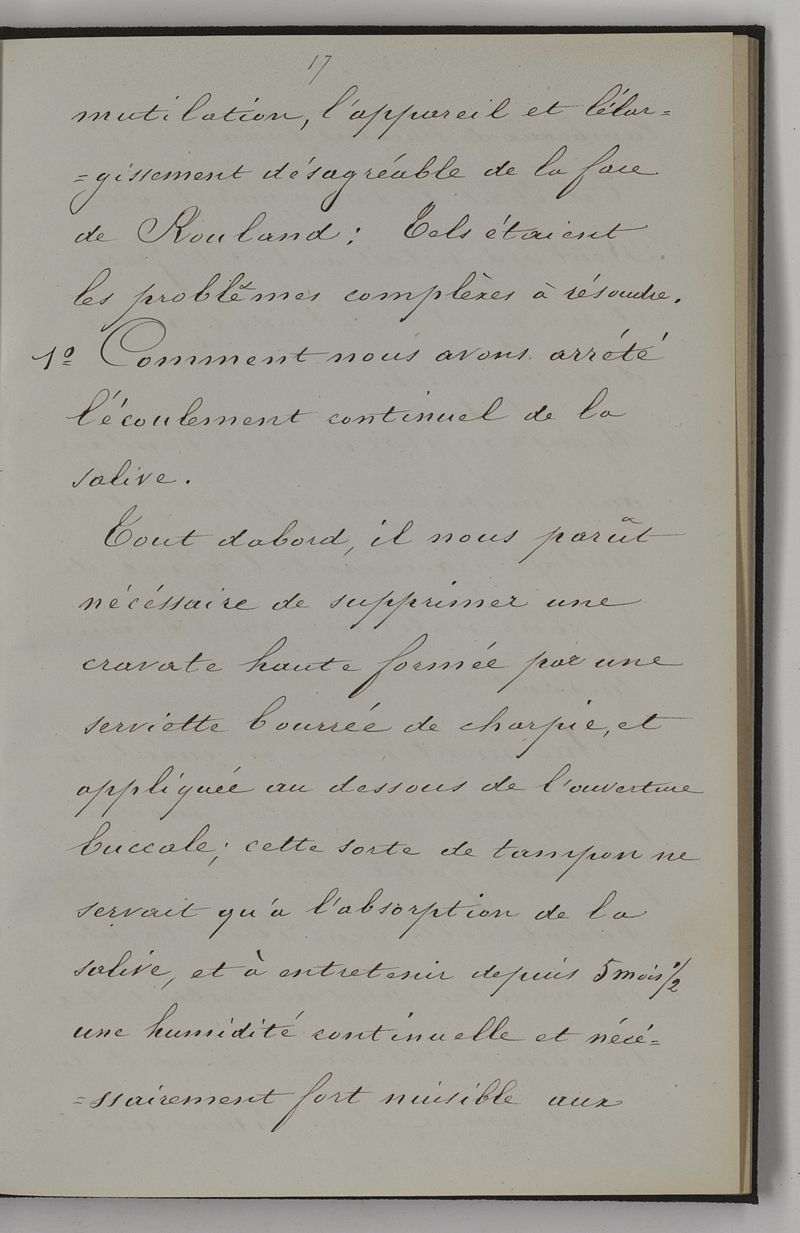 17
mutilation, l'appareil et l'élar=
=gissement désagréable de la face
de Rouland : Tels étaient
les problêmes complèxes à résoudre.
1º Comment nous avons arrété
l'écoulement continuel de la
salive.
Tout dabord, il nous parût
nécéssaire de supprimer une
cravate haute formée par une
serviette bourrée de charpie, et
appliquée au dessous de l'ouverture
buccale ; cette sorte de tampon ne
servait qu'a l'absorption de la
salive, et à entretenir depuis 5 mois 1/2
une humidité continuelle et nécé=
=ssairement fort nuisible aux